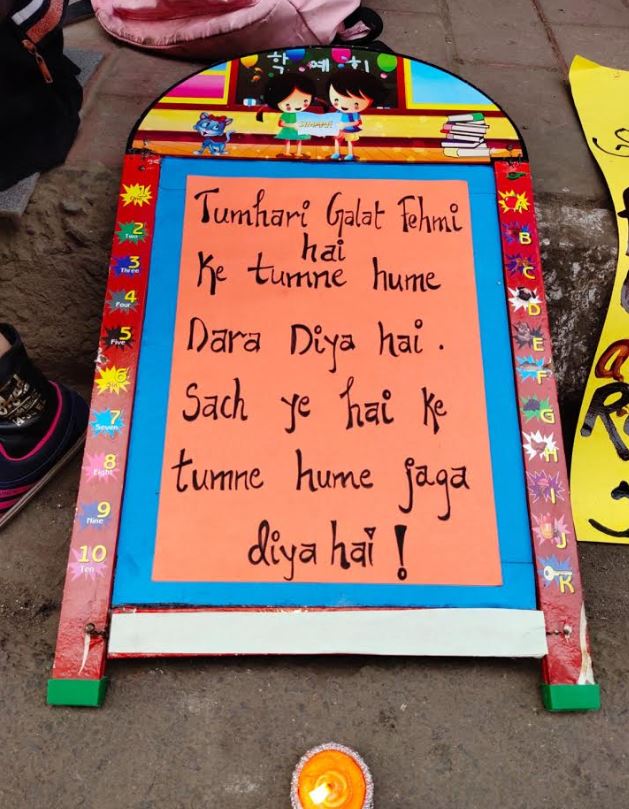 학예회
Tumhari Galat Fehmi
hai
Ke tumne hume
Dara Diya hai .
Sach ye hai Ke
tumne hume jaga
diya hai !
2
Two
3
Three
4
Four
5
Five
6
7
Seven
8
Eight
9
Nine
10
Ten
B
C
D
E
F
G
H
I
J
K